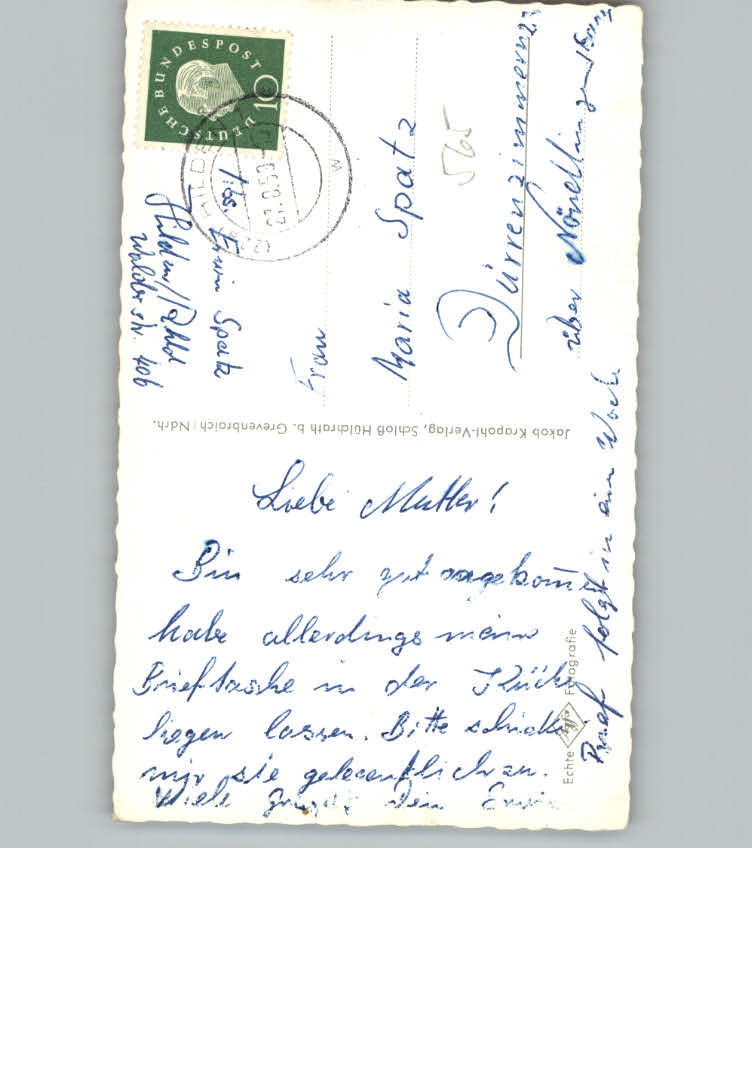 DEUTSCHE BUNDESPOST
10
HILDEN
Abs. Erwin Spatz
Hilden/Rhld
Walder str. 406
Frau
Maria Spatz
565
Dürrenzimmern 23
über Nördlingen / Bay
Jakob Krapohl-Verlag, Schloß Hülchrath b. Grevenbroich / Ndrh.
Liebe Mutter!
Bin sehr gut
habe allerdings meine
Brieftasche in der Küche
liegen lassen. Bitte schicke
mir sie gelegentlich zu.
Viele Grüße Dein Erwin
Brief folgt in ein Woche
Echte Agfa Fotografie